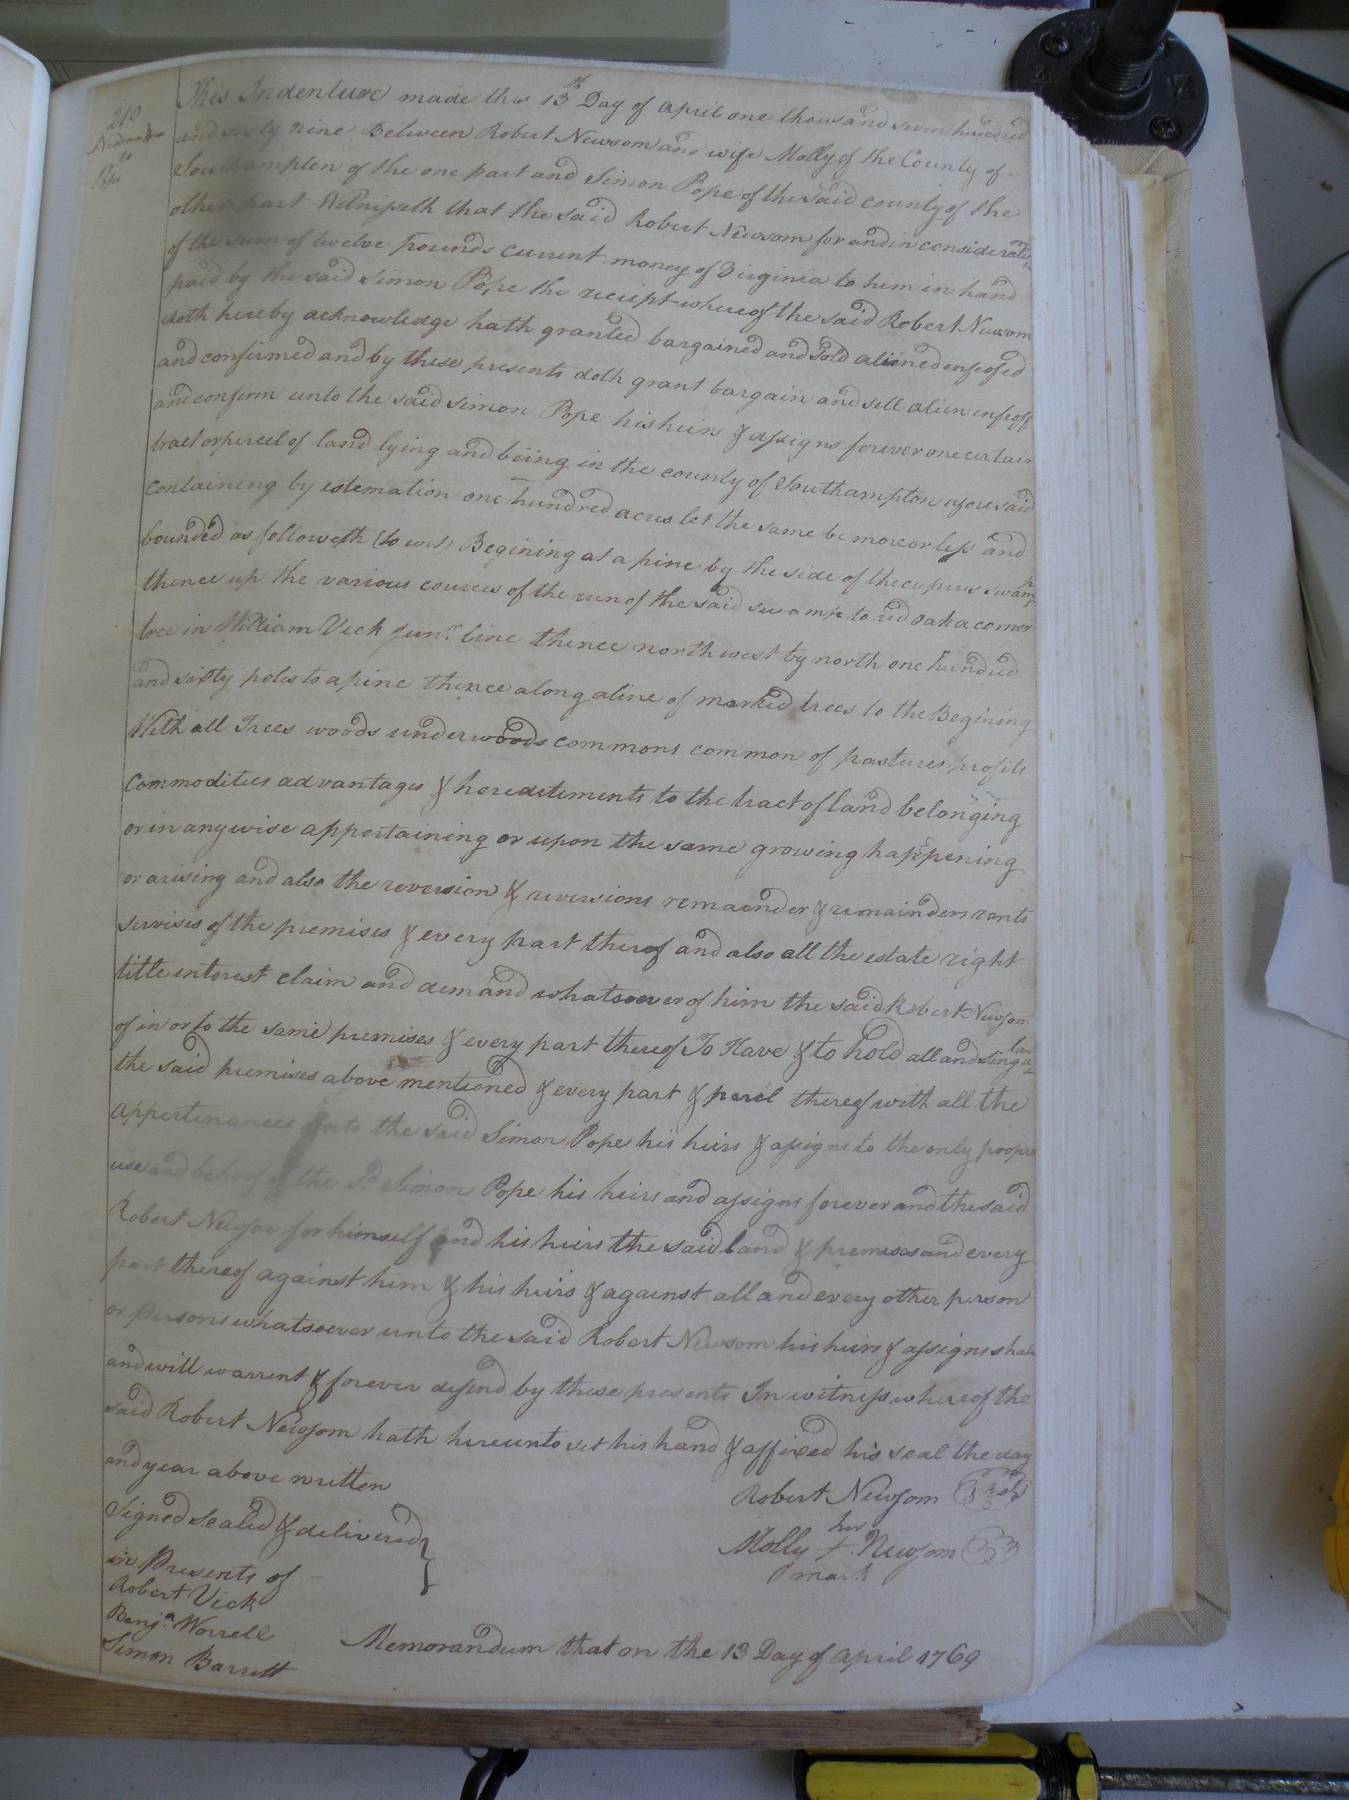 210
Newsom
to
Pope
This Indenture made this 13th Day of April one thousand seven hundred
and sixty nine Between Robert Newsom and wife Molly of the County of
Southampton of the one part and Simon Pope of the said county of the
other part Witnisseth that the said Robert Newsom for and in consideration
of the sum of twelve pounds current money of Virginia to him in hand
paid by the said Simon Pope the reciept whereof the said Robert Newsom
doth hereby acknowledge hath granted bargained and Sold aliened enfeofed
and confirmed and by these presents doth grant bargain and sell alien enfeoff
and confirm unto the said Simon Pope his heirs & assigns forever one certain
tract or percel of land lying and being in the county of Southampton afore said
containing by estemation one hundred acres let the same be more or less and
bounded as followeth (to wit) Begining at a pine by the side of the cyprus swamp
thence up the various cources of the run of the said swamp to red oak a corner
tree in William Vick Junr. line thence north west by north one hundred
and sixtty poles to a pine thence along a line of marked trees to the Begining
With all Trees woods under woods commons common of pastures profits
Commodities advantages & hereditements to the tract of land belonging
or in any wise appertaining or upon the same growing happening
or arising and also the reversion & reversions remaender & remainders rents
servises of the premises & every part thereof and also all the estate right
title interest claim and demand whatsoever of him the said Robert Newsom
of in or to the same premises & every part thereof To Have & to hold all and singular
the said premises above mentioned & every part & parcel thereof with all the
appertenances unto the said Simon Pope his heirs & assigns to the only proper
use and behoof of the Sd. Simon Pope his heirs and assigns forever and the said
Robert Newsom for himself and his heirs the said land & premeses and every
part thereof against him & his heirs & against all and every other person
or persons whatsoever unto the said Robert Newsom his heirs & assigns shall
and will warrent & forever defend by these presents In witness whereof the
said Robert Newsom hath hereunto set his hand & affixed his seal the day
and year above written
Robert Newsom Seal
Signed sealed & delivered
her
Molly + Newsom
mark
in Presents of
Robert Vick
Benja. Worrell
Simon Barrett
Memorandum that on the 13 Day of April 1769